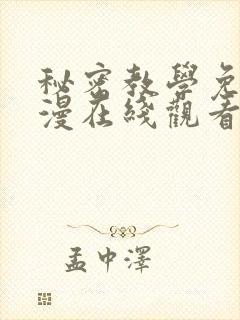 秘密教學免
漫在綫觀看
孟中澤